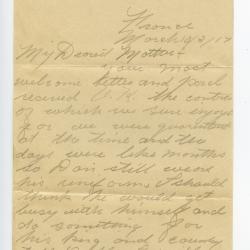 France
March 18/17
My Dearest Mother:-
Your most
welcome letter and parcel
received O.K. the contents
of which we sure enjoyed
for we were quarantined
at the time and the
days were like months
so Dan still wears
his uniform I should
think he would get
busy with himself and
do something for
his King and country